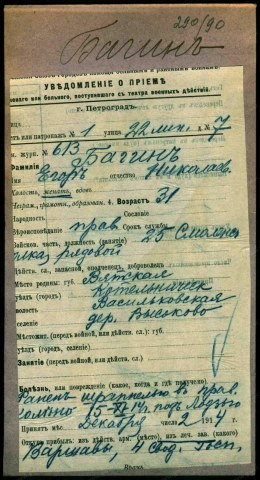 290/90
Багинъ
УВѢДОМЛЕНІЕ О ПРІЕМѢ
раненаго или больного, поступившаго съ театра военныхъ дѣйствій.
г. Петроградъ.
или патронажъ № 1 улица 22 лин. д. № 7
журн. № 613
Фамилія Багинъ
Имя Егоръ отчество Николаев.
Холостъ, женатъ, вдовъ
Неграм., грамотн., образован. 4. Возрастъ 31
Народность Сословіе
Вѣроисповѣданіе прав. Срокъ службы
Войсков. часть, должность (занятія) 25 Смоленск
полка рядовой
Дѣйств. сл., запасной, ополченецъ, доброволецъ
Мѣсто родины: губ. Вятская
уѣздъ (городъ) Котельническ
волость Васильковская
селеніе дер. Высково
Мѣстожит. (передъ войной, или дѣйств. сл.): губ.
уѣздъ (городъ), селеніе
Занятіе (передъ войной, или дѣйств. сл.)
Болѣзнь, или поврежденіе (какое, когда и гдѣ получено).
Раненъ шрапнелью въ прав.
15-XI 14 г. подъ
Принятъ мѣс. Декабря числа 2 1914 г.
Откуда прибылъ: изъ дѣйств. арм. (мѣсто), изъ леч. зав. (какого)
Варшавы, 4 свод. Госп.